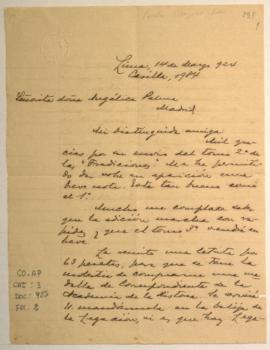 Lima, 14 de Marzo 924
Casilla, 1984
Señorita doña Angélica Palma
Madrid
Mi distinguida amiga
Mil gra-
cias por su envío del tomo 2º de
las "Tradiciones"
do de note su aparición una
breve nota. Está tan bueno como
el 1º.
Mucho me complace saber
que la edición marcha con ra-
pidez y que el tomo 3º vendrá en
breve
La remito una letrita por
63 pesetas, para que se tome la
molestia de comprarme una me-
dalla de Correspondiente de la
Academia de la Historia
mandármela en la balija de
la Legación, si es que hay Lega-
CO.AP
CAJ: 3
FOL: 8